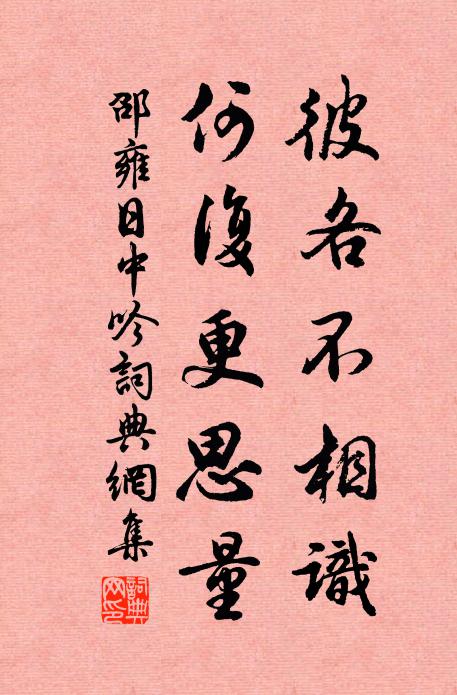 彼各不相識
何復更思量
邵雍日中吟詞典網集
詞典網印